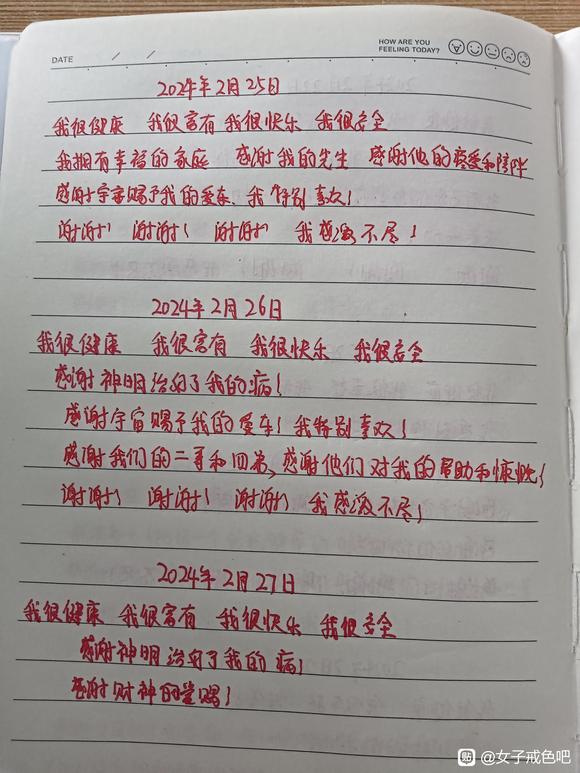 DATE / /
HOW ARE YOU
FEELING TODAY?
2024年2月25日
我很健康 我很富有 我很快乐 我很安全
我拥有幸福的家庭 感谢我的先生 感谢他的疼爱和陪伴
感谢宇宙赐予我的爱车、我特别喜欢!
谢谢! 谢谢! 谢谢! 我感激不尽!
2024年2月26日
我很健康 我很富有 我很快乐 我很安全
感谢神明治好了我的病!
感谢宇宙赐予我的爱车! 我特别喜欢!
感谢我们的二哥和四弟、感谢他们对我的帮助和慷慨!
谢谢! 谢谢! 谢谢! 我感激不尽!
2024年2月27日
我很健康 我很富有 我很快乐 我很安全
感谢神明治好了我的病!
感谢财神的赏赐!
贴 @女子戒色吧